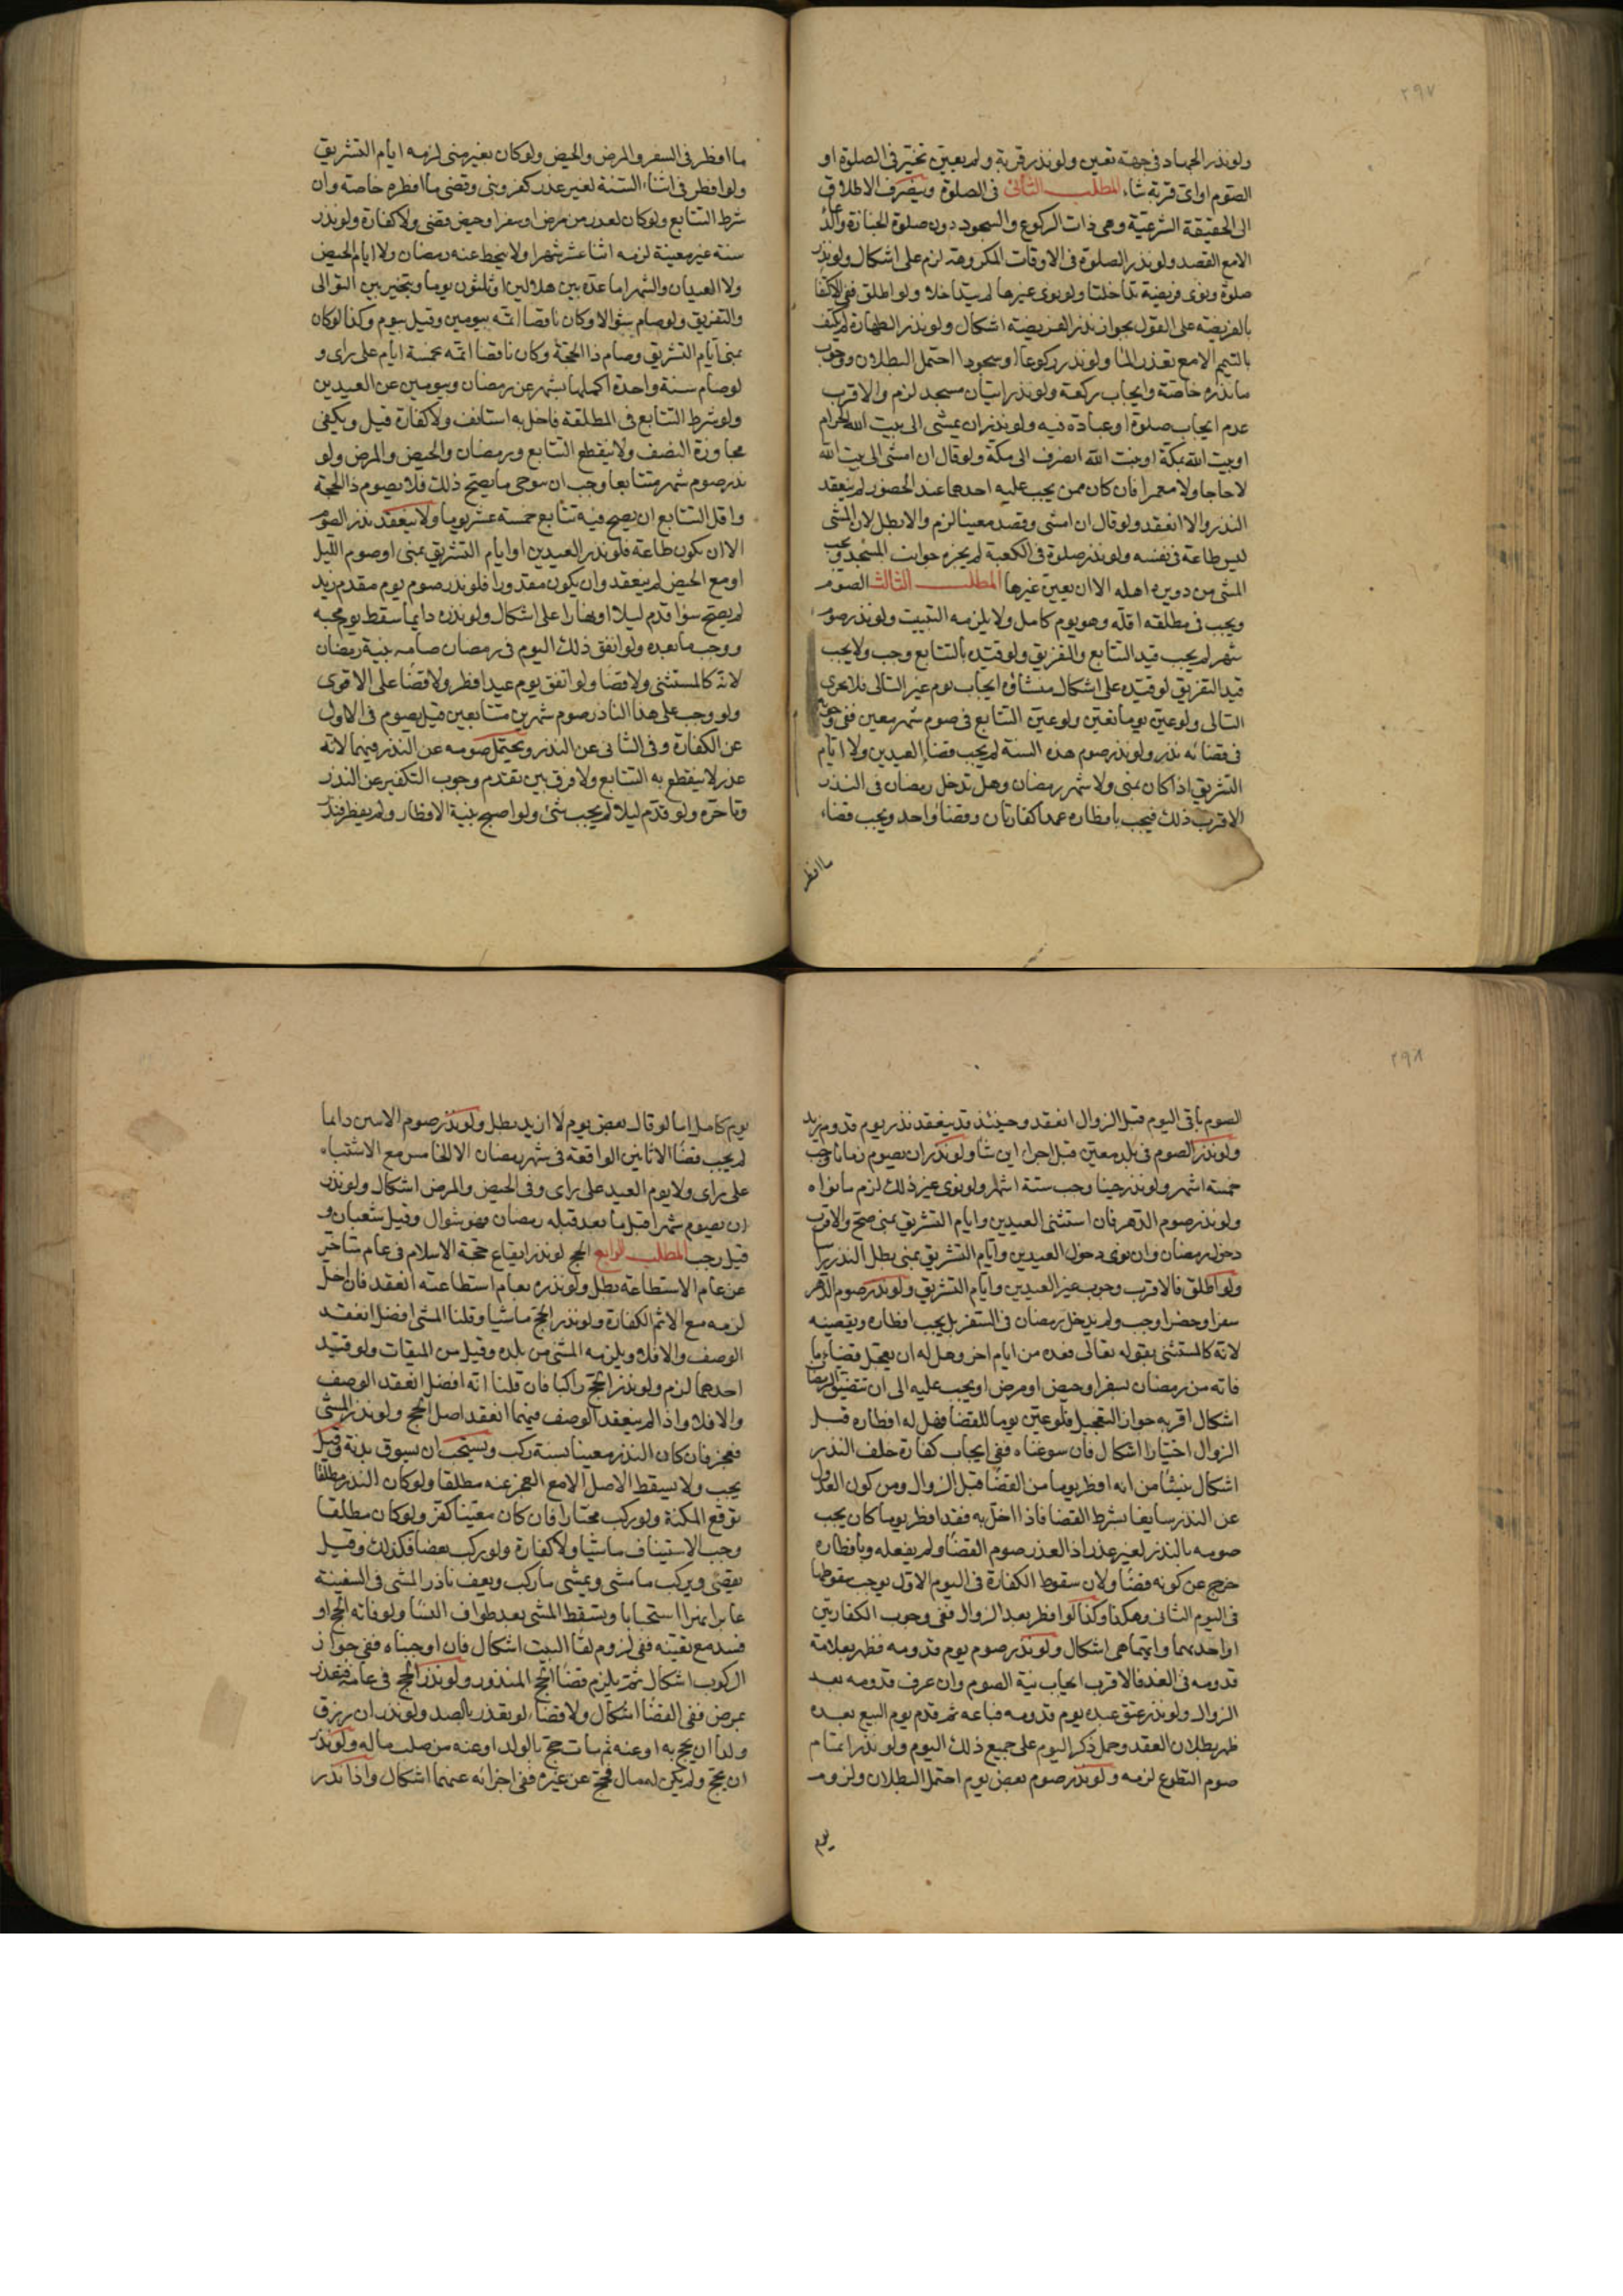 ٢٩٧
ولو نذر الجهاد فى جهته تعين ولو نذر قربة ولم يعين تخير فى الصلوة او
الصوم او اى قربة شاء المطلب الثانى فى الصلوة وينصرف الاطلاق
الى الحقيقة الشرعية وهى ذات الركوع والسجود دون صلوة الجنازة والدعا
الا مع القصد ولو نذر الصلوة فى الاوقات المكروهة لزم على اشكال ولو نذر
صلوة ونوى فريضة تداخلتا ولو نوى غيرها لم يتداخلا ولو اطلق ففى الاكتفا
بالفريضة على القول بجواز نذر الفريضة اشكال ولو نذر الطهارة لم يكف
بالتيمم الا مع تعذر الما ولو نذر ركوعا او سجودا احتمل البطلان ووجوب
ما نذره خاصة وايجاب ركعة ولو نذر اتيان مسجد لزم والاقرب
عدم ايجاب صلوة او عبادة فيه ولو نذر ان يمشى الى بيت الله الحرام
او بيت الله بمكة او بيت الله انصرف الى مكة ولو قال ان امشى الى بيت الله
لا حاجا ولا معتمرا فان كان ممن يجب عليه احدهما عند الحضور لم ينعقد
النذر والا انعقد ولو قال ان امشى وقصد معينا لزم والا بطل لان المشى
ليس طاعة فى نفسه ولو نذر صلوة فى الكعبة لم يجزه جوانب المسجد ويجب
المشى من دويرة اهله الا ان يعين غيرها المطلب الثالث الصوم
ويجب فى مطلقه اقله وهو يوم كامل ولا يلزمه التبييت ولو نذر صوم
شهر لم يجب قيد التتابع والتفريق ولو قيده بالتتابع وجب ولا يجب
قيد التفريق لو قيده على اشكال منشاؤه ايجاب يوم غير التالى فلا يجزى
التالى ولو عين يوما تعين ولو عين التتابع فى صوم شهر معين ففى وجوبه
فى قضائه نذر ولو نذر صوم هذه السنة لم يجب قضا العيدين ولا ايام
التشريق اذا كان بمنى ولا شهر رمضان وهل تدخل رمضان فى النذر
الاقرب ذلك فيجب بافطاره عمدا كفارتان وقضاؤ واحد ويجب قضاء
ما افطر
ما افطر فى السفر والمرض والحيض ولو كان بغير منى لزمه ايام التشريق
ولو افطر فى اثناء السنة لغير عذر كفر وبنى وقضى ما افطره خاصة وان
شرط التتابع ولو كان لعذر من مرض او سفر او حيض قضى ولا كفارة ولو نذر
سنة غير معينة لزمه اثنا عشر شهرا ولا ينحط عنه رمضان ولا ايام الحيض
ولا العيدان والشهر اما عدة بين هلالين او ثلثون يوما ويتخير بين التوالى
والتفريق ولو صام شوالا وكان ناقصا اتمه بيومين وقيل بيوم وكذا لو كان
بمنى ايام التشريق وصام ذا الحجة وكان ناقصا اتمه بخمسة ايام على راى و
لو صام سنة واحدة اكملها بشهر عن رمضان وبيومين عن العيدين
ولو شرط التتابع فى المطلقة فاخل به استانف ولا كفارة قيل ويكفى
مجاوزة النصف ولا ينقطع التتابع برمضان والحيض والمرض ولو
نذر صوم شهر متتابعا وجب ان يتوخى ما يصح ذلك فلا يصوم ذا الحجة
واقل التتابع ان يصح فيه تتابع خمسة عشر يوما ولا ينعقد نذر الصوم
الا ان يكون طاعة فلو نذر العيدين او ايام التشريق بمنى او صوم الليل
او مع الحيض لم ينعقد وان يكون مقدورا فلو نذر صوم يوم مقدم زيد
لم يصح سوا قدم ليلا او نهارا على اشكال ولو نذره دايما سقط يوم مجيئه
ووجب ما بعده ولو اتفق ذلك اليوم فى رمضان صامه بنية رمضان
لانه كالمستثنى ولا قضا ولو اتفق يوم عيد افطر ولا قضا على الاقوى
ولو وجب على هذا الناذر صوم شهرين متتابعين قيل يصوم فى الاول
عن الكفارة وفى الثانى عن النذر ويحتمل صومه عن النذر فيهما لانه
عذر لا ينقطع به التتابع ولا فرق بين تقدم وجوب التكفير عن النذر
وتاخره ولو قدم ليلا لم يجب شئ ولو اصبح بنية الافطار ولم يفطر فنذر
٢٩٨
الصوم باقى اليوم قبل الزوال انعقد وحينئذ قد ينعقد نذر يوم قدوم زيد
ولو نذر الصوم فى بلد معين قيل اجزاء اين شا ولو نذر ان يصوم زمانا وجب
خمسة اشهر ولو نذر حينا وجب ستة اشهر ولو نوى غير ذلك لزم ما نواه
ولو نذر صوم الدهر فان استثنى العيدين وايام التشريق بمنى صح والاقرب
دخول رمضان وان نوى دخول العيدين وايام التشريق بمنى بطل النذر راسا
ولو اطلق فالاقرب وجوب غير العيدين وايام التشريق ولو نذر صوم الدهر
سفرا وحضرا وجب ولم يدخل رمضان فى السفر بل يجب افطاره ويقضيه
لانه كالمستثنى بقوله تعالى فعدة من ايام اخر وهل له ان يعجل قضاء ما
فاته من رمضان بسفر او حيض او مرض او يجب عليه الى ان تتضيق رمضان
اشكال اقربه جواز التعجيل فلو عين يوما للقضا فهل له افطاره قبل
الزوال اختيارا اشكال فان سوغناه ففى ايجاب كفارة خلف النذر
اشكال ينشأ من انه افطر يوما من القضا قبل الزوال ومن كون العدول
عن النذر سايغا بشرط القضا فاذا اخل به فقد افطر يوما كان يجب
صومه بالنذر لغير عذر اذ العذر صوم القضا ولم يفعله وبافطاره
خرج عن كونه قضا ولان سقوط الكفارة فى اليوم الاول يوجب سقوطها
فى اليوم الثانى وهكذا وكذا لو افطر بعد الزوال ففى وجوب الكفارتين
او احديهما وايتهما هى اشكال ولو نذر صوم يوم قدومه فظهر بعلامة
قدومه فى الغد فالاقرب ايجاب نية الصوم وان عرف قدومه بعد
الزوال ولو نذر عتق عبده يوم قدومه فباعه ثم قدم يوم البيع بعده
ظهر بطلان العقد وحمل ذكر اليوم على جميع ذلك اليوم ولو نذر اتمام
صوم التطوع لزمه ولو نذر صوم بعض يوم احتمل البطلان ولزوم
يوم
يوم كامل اما لو قال بعض يوم لا ازيد بطل ولو نذر صوم الاثنين دائما
لم يجب قضا الاثانين الواقعة فى شهر رمضان الا الخامس مع الاشتباه
على راى ولا يوم العيد على راى وفى الحيض والمرض اشكال ولو نذر
ان يصوم شهرا قبل ما بعد قبله رمضان فهو شوال وقيل شعبان و
قيل رجب المطلب الرابع الحج لو نذر ايقاع حجة الاسلام فى عام متاخر
عن عام الاستطاعة بطل ولو نذره بعام استطاعته انعقد فان اخل
لزمه مع الاثم الكفارة ولو نذر الحج ماشيا وقلنا المشى افضل انعقد
الوصف والا فلا ويلزمه المشى من بلده وقيل من الميقات ولو قيد
احدهما لزم ولو نذر الحج راكبا فان قلنا انه افضل انعقد الوصف
والا فلا واذا لم ينعقد الوصف فيهما انعقد اصل الحج ولو نذر المشى
فعجز فان كان النذر معينا بسنة ركب ويستحب ان يسوق بدنة وقيل
يجب ولا يسقط الاصل الا مع العجز عنه مطلقا ولو كان النذر مطلقا
توقع المكنة ولو ركب مختارا فان كان معينا كفر ولو كان مطلقا
وجب الاستيناف ماشيا ولا كفارة ولو ركب بعضا فكذلك وقيل
يقضى ويركب ما مشى ويمشى ما ركب ويقف ناذر المشى فى السفينة
عابرا نهرا استحبابا ويسقط المشى بعد طواف النسا ولو فاته الحج او
فسد مع تعينه ففى لزوم لقا البيت اشكال فان اوجبناه ففى جواز
الركوب اشكال ثم يلزم قضا الحج المنذور ولو نذر الحج فى عامه فتعذر
بمرض ففى القضا اشكال ولا قضاء لو تعذر بالصد ولو نذر ان رزق
ولدا ان يحج به او عنه ثم مات حج بالولد او عنه من صلب ماله ولو نذر
ان يحج ولم يكن له مال فحج عن غيره ففى اجزائه عنهما اشكال واذا نذر